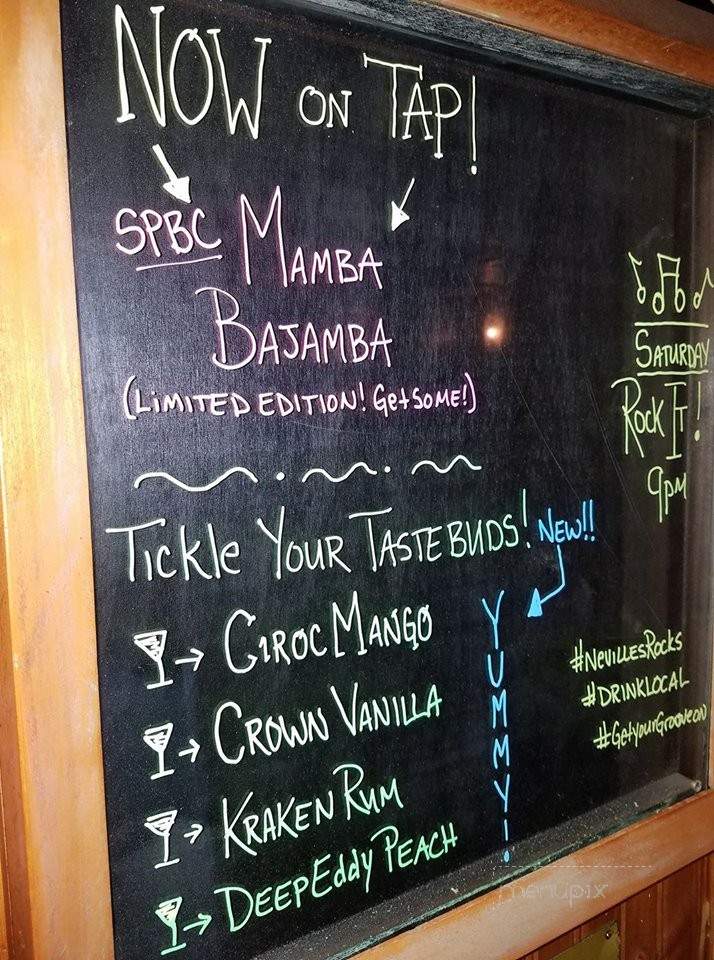 NOW ON TAP!
SPBC MAMBA
BAJAMBA
(LIMITED EDITION! Get SOME!)
Tickle Your TASTEBUDS! NEW!!
CIROC MANGO
CROWN VANILLA
KRAKEN RUM
DEEP Eddy PEACH
YUMMY!
SATURDAY
ROCK IT!
9pm
#NevillesRocks
#DRINKLOCAL
#GetyourGrooveon
menupix